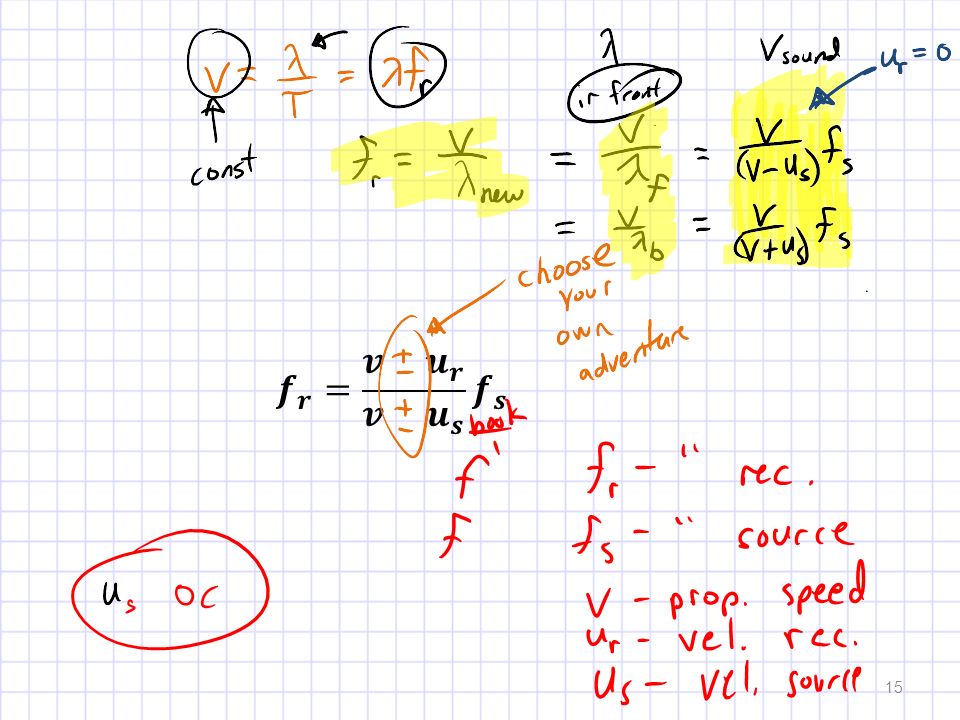 v = λ/T = λf_r
const
λ in front
v_sound
u_r = 0
f_r = v/λ_new = v/λ_f = v/(v-u_s) f_s
= v/λ_b = v/(v+u_s) f_s
choose
your
own
adventure
f_r = (v ± u_r)/(v ± u_s) f_s
book
f' f_r - " rec.
f f_s - " source
u_s oc
v - prop. speed
u_r - vel. rec.
u_s - vel. source
15